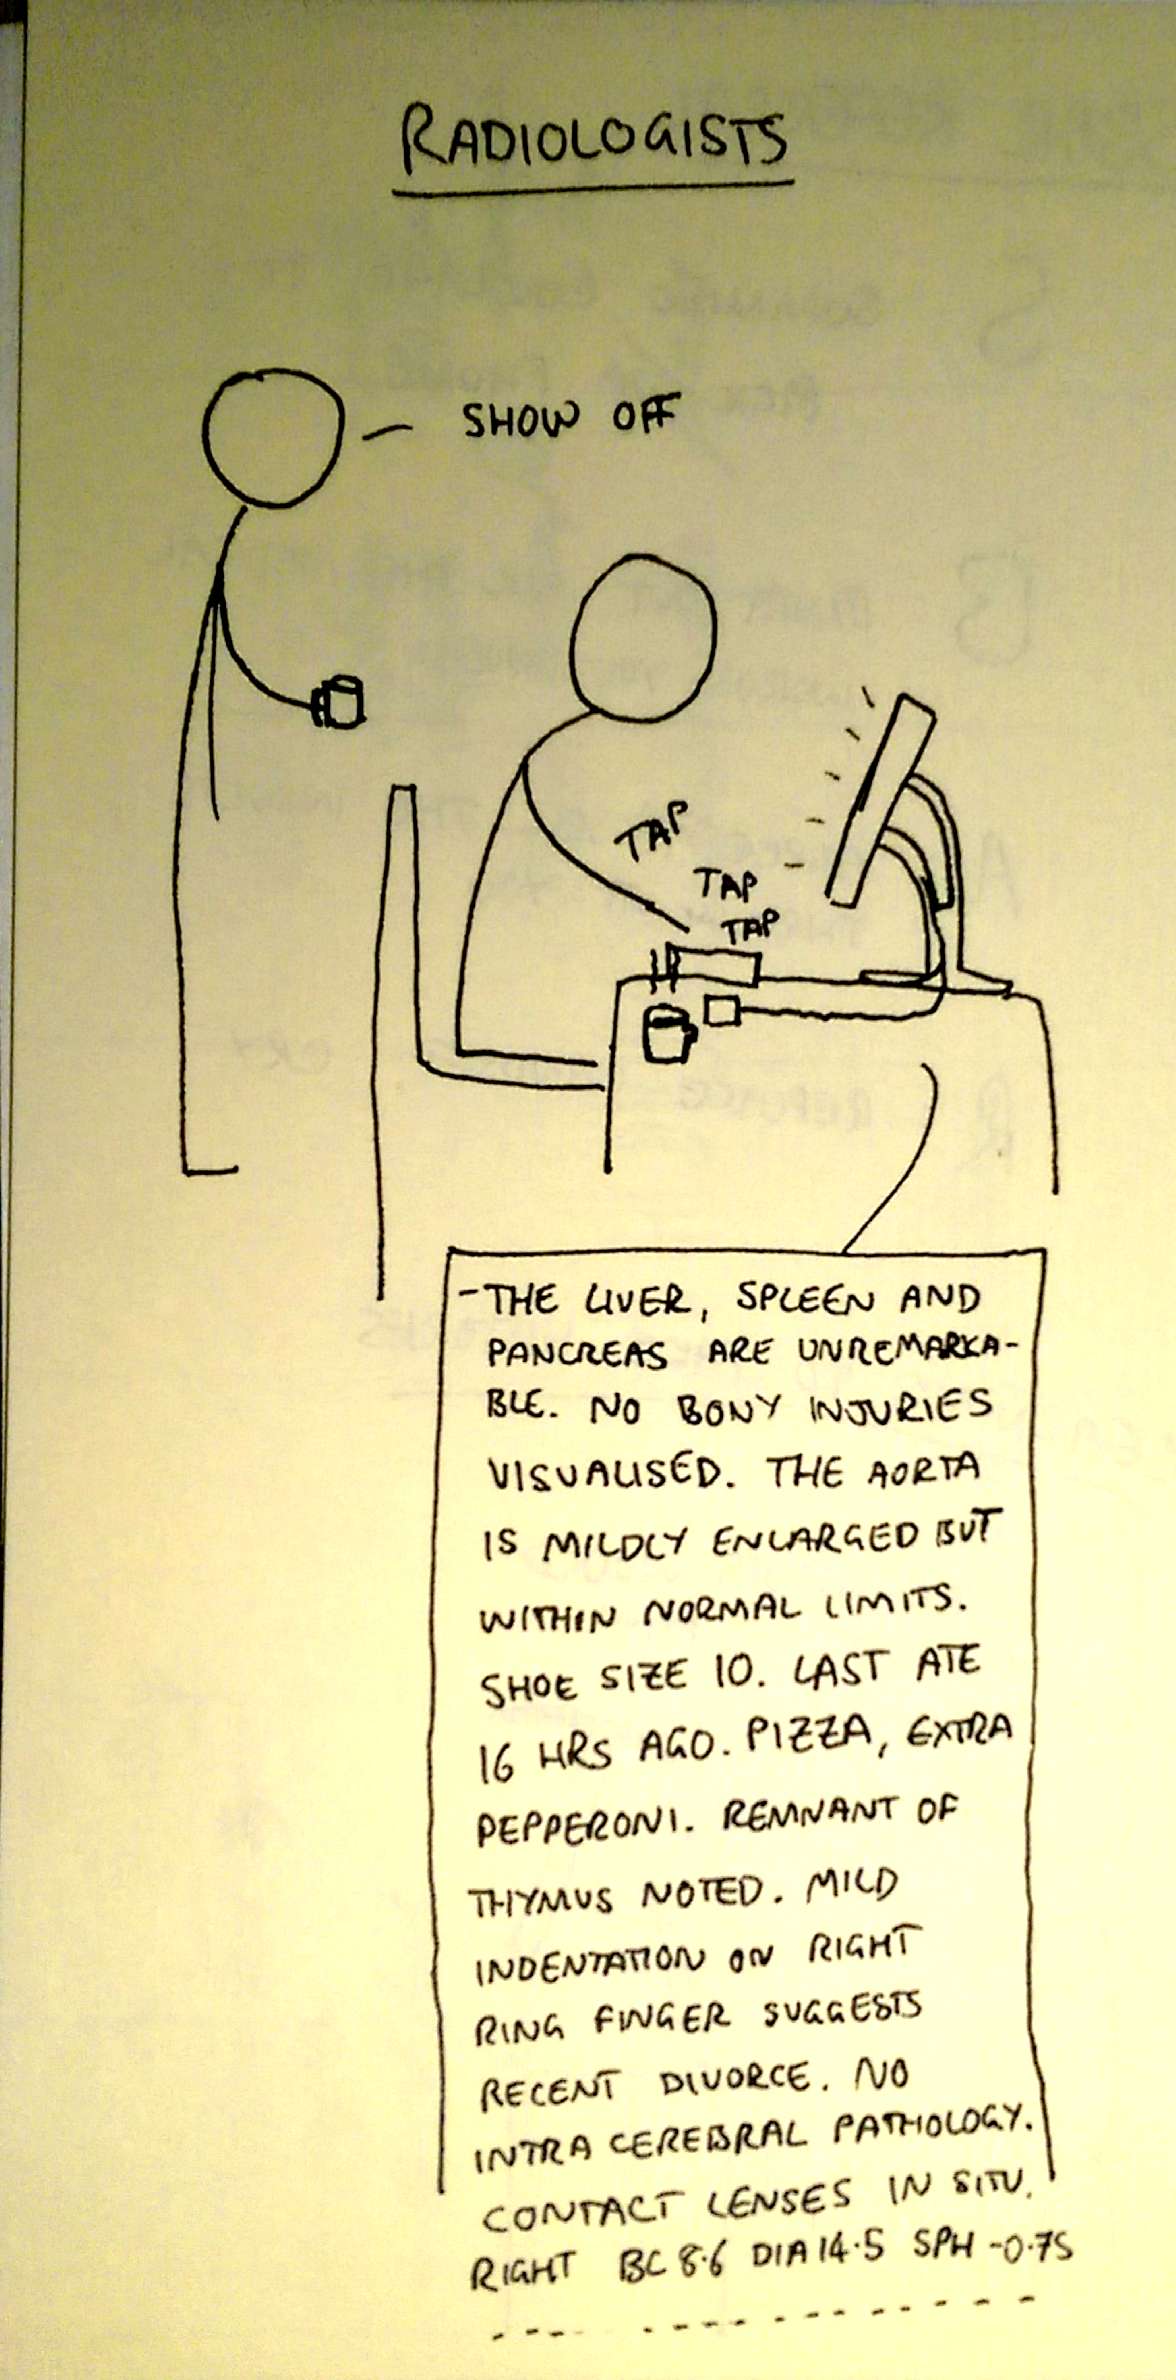 RADIOLOGISTS
SHOW OFF
TAP
TAP
TAP
- THE LIVER, SPLEEN AND
PANCREAS ARE UNREMARKA-
BLE. NO BONY INJURIES
VISUALISED. THE AORTA
IS MILDLY ENLARGED BUT
WITHIN NORMAL LIMITS.
SHOE SIZE 10. LAST ATE
16 HRS AGO. PIZZA, EXTRA
PEPPERONI. REMNANT OF
THYMUS NOTED. MILD
INDENTATION ON RIGHT
RING FINGER SUGGESTS
RECENT DIVORCE. NO
INTRA CEREBRAL PATHOLOGY.
CONTACT LENSES IN SITU.
RIGHT BC 8.6 DIA 14.5 SPH -0.75